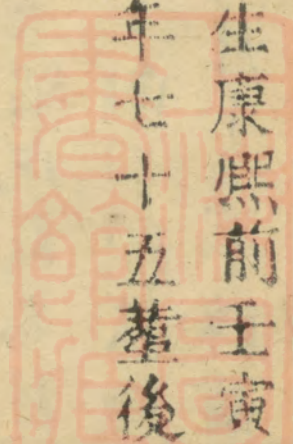 生康熙前壬寅
年七十五塟後